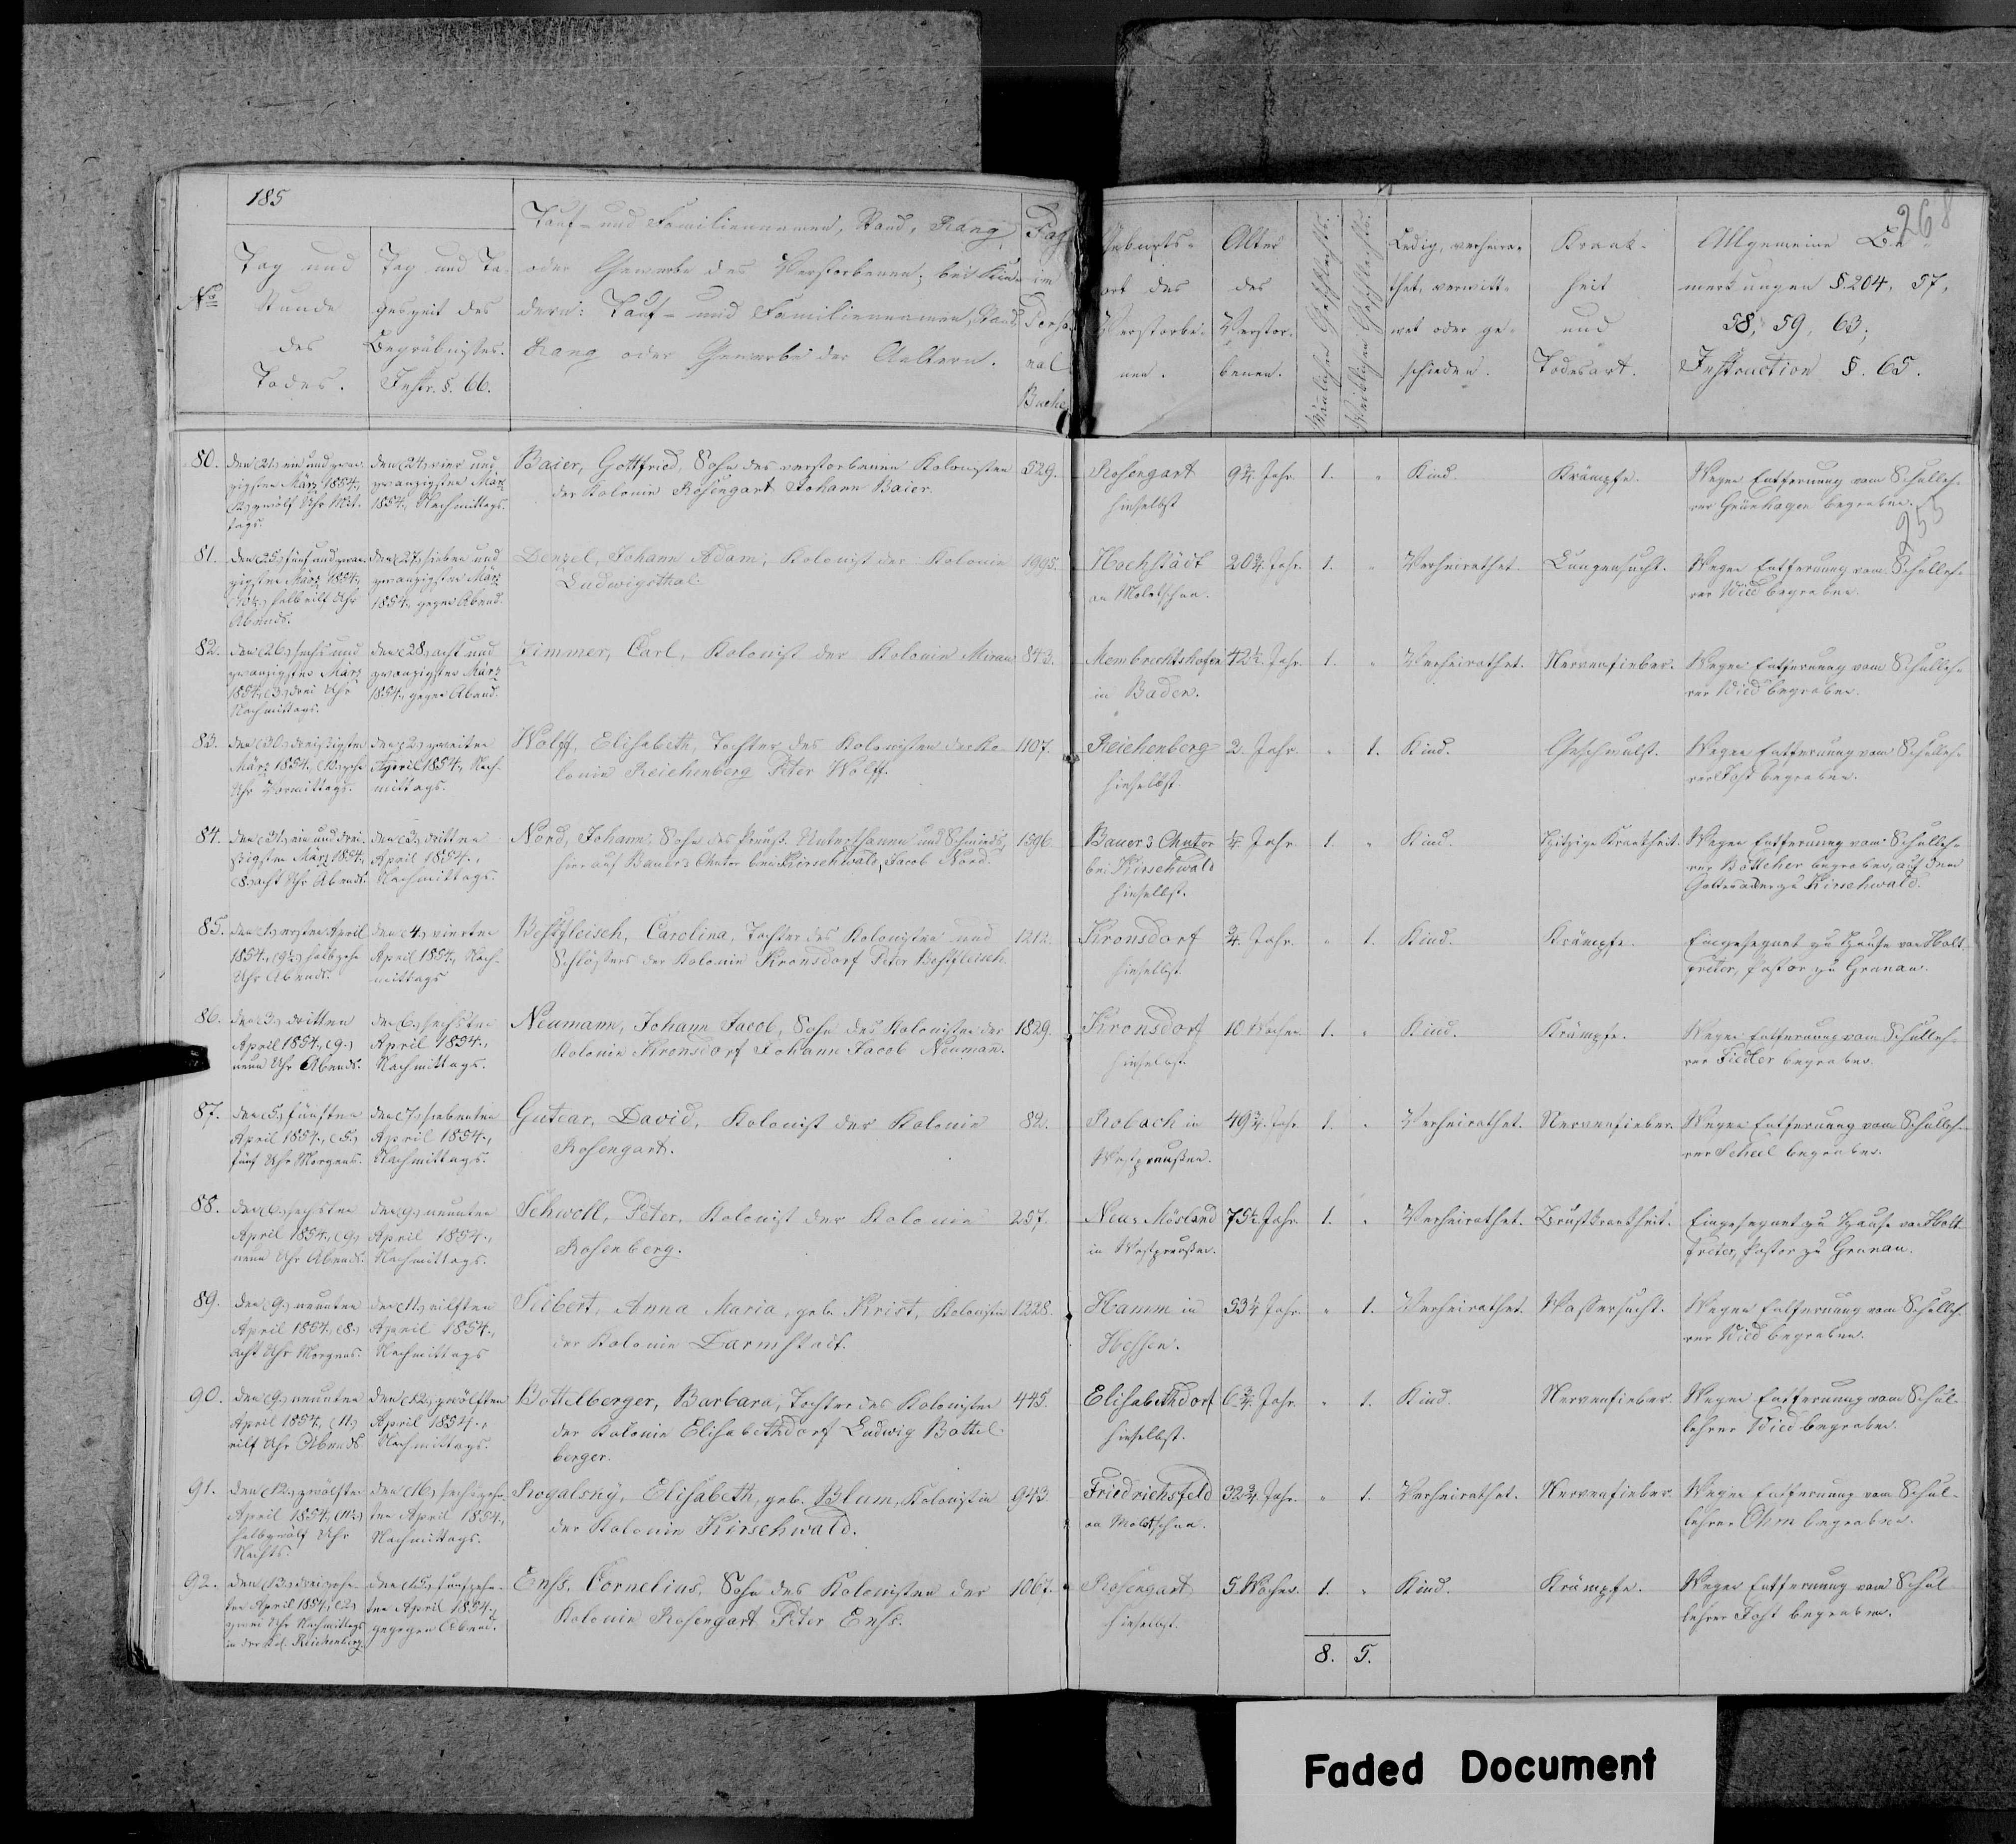 185
268
No
Tag und
Stunde
des
Todes.
Tag und Ta-
geszeit des
Begräbnisses.
Instr. §. 66.
Tauf- und Familiennamen, Stand, Rang
oder Gewerbe des Verstorbenen; bei Kin-
dern: Tauf- und Familiennamen, Stand,
Rang oder Gewerbe der Aeltern.
Pag
im
Perso-
nal
Buche
Geburts-
ort des
Verstorbe-
nen.
Alter
des
Verstor-
benen.
Männlichen Geschlechts.
Weiblichen Geschlechts.
Ledig, verheira-
thet, verwitt-
wet oder ge-
schieden.
Krank-
heit
und
Todesart.
Allgemeine Be-
merkungen §. 204, 57,
58, 59, 63;
Instruction §. 65.
80.
den (21.) ein und zwan-
zigsten März 1854.,
(12.) zwölf Uhr Mit-
tags.
den (24.) vier und
zwanzigsten März
1854., Nachmittags.
Baier, Gottfried, Sohn des verstorbenen Kolonisten
der Kolonie Rosengart Johann Baier.
529.
Rosengart
hieselbst
9¾ Jahr.
1.
"
Kind.
Krämpfe.
Wegen Entfernung vom Schulleh-
rer Grünhagen begraben.
253
81.
den (25.) fünf und zwan-
zigsten März 1854.,
(10½) halb eilf Uhr
Abends.
den (27.) sieben und
zwanzigsten März
1854., gegen Abend.
Denzel, Johann Adam, Kolonist der Kolonie
Ludwigsthal.
1905.
Hochstädt
an Molotschna.
20¾ Jahr.
1.
"
Verheirathet.
Lungensucht.
Wegen Entfernung vom Schulleh-
rer Wied begraben.
82.
den (26.) sechs und
zwanzigsten März
1854., (3.) drei Uhr
Nachmittags.
den (28.) acht und
zwanzigsten März
1854., gegen Abend.
Zimmer, Carl, Kolonist der Kolonie Mirau
843.
Membrichtshofen
in Baden.
42½ Jahr.
1.
"
Verheirathet.
Nervenfieber.
Wegen Entfernung vom Schulleh-
rer Wied begraben.
83.
den (30.) dreißigsten
März 1854., (10.) zehn
Uhr Vormittags.
den (2.) zweiten
April 1854., Nach-
mittags.
Wolff, Elisabeth, Tochter des Kolonisten der Ko-
lonie Reichenberg Peter Wolff.
1107.
Reichenberg
hieselbst.
2. Jahr.
"
1.
Kind.
Geschwulst.
Wegen Entfernung vom Schulleh-
rer Jost begraben.
84.
den (31.) ein und drei-
ßigsten März 1854.,
(8.) acht Uhr Abends.
den (3.) dritten
April 1854.,
Nachmittags.
Nord, Johann, Sohn des Preuß. Unterthanen und Schmieds,
hier auf Bauer's Chutor bei Kirschwald, Jacob Nord.
1596.
Bauer's Chutor
bei Kirschwald
hieselbst.
¼ Jahr.
1.
"
Kind.
Hitzige Krankheit.
Wegen Entfernung vom Schulleh-
rer Böttcher begraben, auf dem
Gottesacker zu Kirschwald.
85.
den (1.) ersten April
1854., (9½) halb zehn
Uhr Abends.
den (4.) vierten
April 1854., Nach-
mittags
Bestfleisch, Carolina, Tochter des Kolonisten und
Schlößers der Kolonie Kronsdorf Peter Bestfleisch
1212.
Kronsdorf
hieselbst
¾ Jahr.
"
1.
Kind.
Krämpfe.
Eingesegnet zu Hause von Holt-
freter, Pastor zu Grunau.
86.
den (3.) dritten
April 1854., (9.)
neun Uhr Abends.
den (6.) sechsten
April 1854.,
Nachmittags.
Neumann, Johann Jacob, Sohn des Kolonisten der
Kolonie Kronsdorf Johann Jacob Neuman.
1829.
Kronsdorf
hieselbst.
10 Wochen.
1.
"
Kind.
Krämpfe.
Wegen Entfernung vom Schulleh-
rer Fiedler begraben.
87.
den (5.) fünften
April 1854., (5.)
fünf Uhr Morgens.
den (7.) siebenten
April 1854.,
Nachmittags.
Gutear, David, Kolonist der Kolonie
Rosengart.
82.
Robach in
Westpreußen.
49¾ Jahr
1.
"
Verheirathet.
Nervenfieber.
Wegen Entfernung vom Schulleh-
rer Scheel begraben.
88.
den (6.) sechsten
April 1854., (9.)
neun Uhr Abends.
den (9.) neunten
April 1854.,
Nachmittags.
Schwoll, Peter, Kolonist der Kolonie
Rosenberg.
257.
Neu-Mösland
in Westpreußen.
75½ Jahr.
1.
"
Verheirathet.
Brustkrankheit.
Eingesegnet zu Hause von Holt
freter, Pastor zu Grunau.
89.
den (9.) neunten
April 1854., (8.)
acht Uhr Morgens.
den (11.) eilften
April 1854.,
Nachmittags
Seibert, Anna Maria, geb. Krist, Kolonistin
der Kolonie Darmstadt.
1228.
Hamm in
Hessen.
53¼ Jahr.
"
1.
Verheirathet.
Wassersucht.
Wegen Entfernung vom Schulleh-
rer Wied begraben.
90.
den (9.) neunten
April 1854, (11.)
eilf Uhr Abends.
den (12.) zwölften
April 1854.,
Nachmittags.
Bottelberger, Barbara, Tochter des Kolonisten
der Kolonie Elisabethdorf Ludwig Bottel-
berger.
445.
Elisabethdorf
hieselbst.
6¾ Jahr.
"
1.
Kind.
Nervenfieber.
Wegen Entfernung vom Schul-
lehrer Wied begraben.
91.
den (12.) zwölften
April 1854, (11½)
halb zwölf Uhr
Nachts.
den (16.) sechszehn-
ten April 1854.,
Nachmittags.
Rogalsky, Elisabeth, geb. Blum, Kolonistin
der Kolonie Kirschwald.
943.
Friedrichsfeld
an Molotschna.
32¾ Jahr.
"
1.
Verheirathet.
Nervenfieber
Wegen Entfernung vom Schul-
lehrer Ohm begraben.
92.
den (13.) dreizehn-
ten April 1854, (2.)
zwei Uhr Nachmittags
in der Kol. Reichenberg.
den (15.) fünfzehn-
ten April 1854.,
gegen Abend.
Enß, Cornelius, Sohn des Kolonisten der
Kolonie Rosengart Peter Enß.
1067.
Rosengart
hieselbst.
5 Wochen.
1.
"
Kind.
Krämpfe.
Wegen Entfernung vom Schul
lehrer Jost begraben.
8. 5.
Faded Document